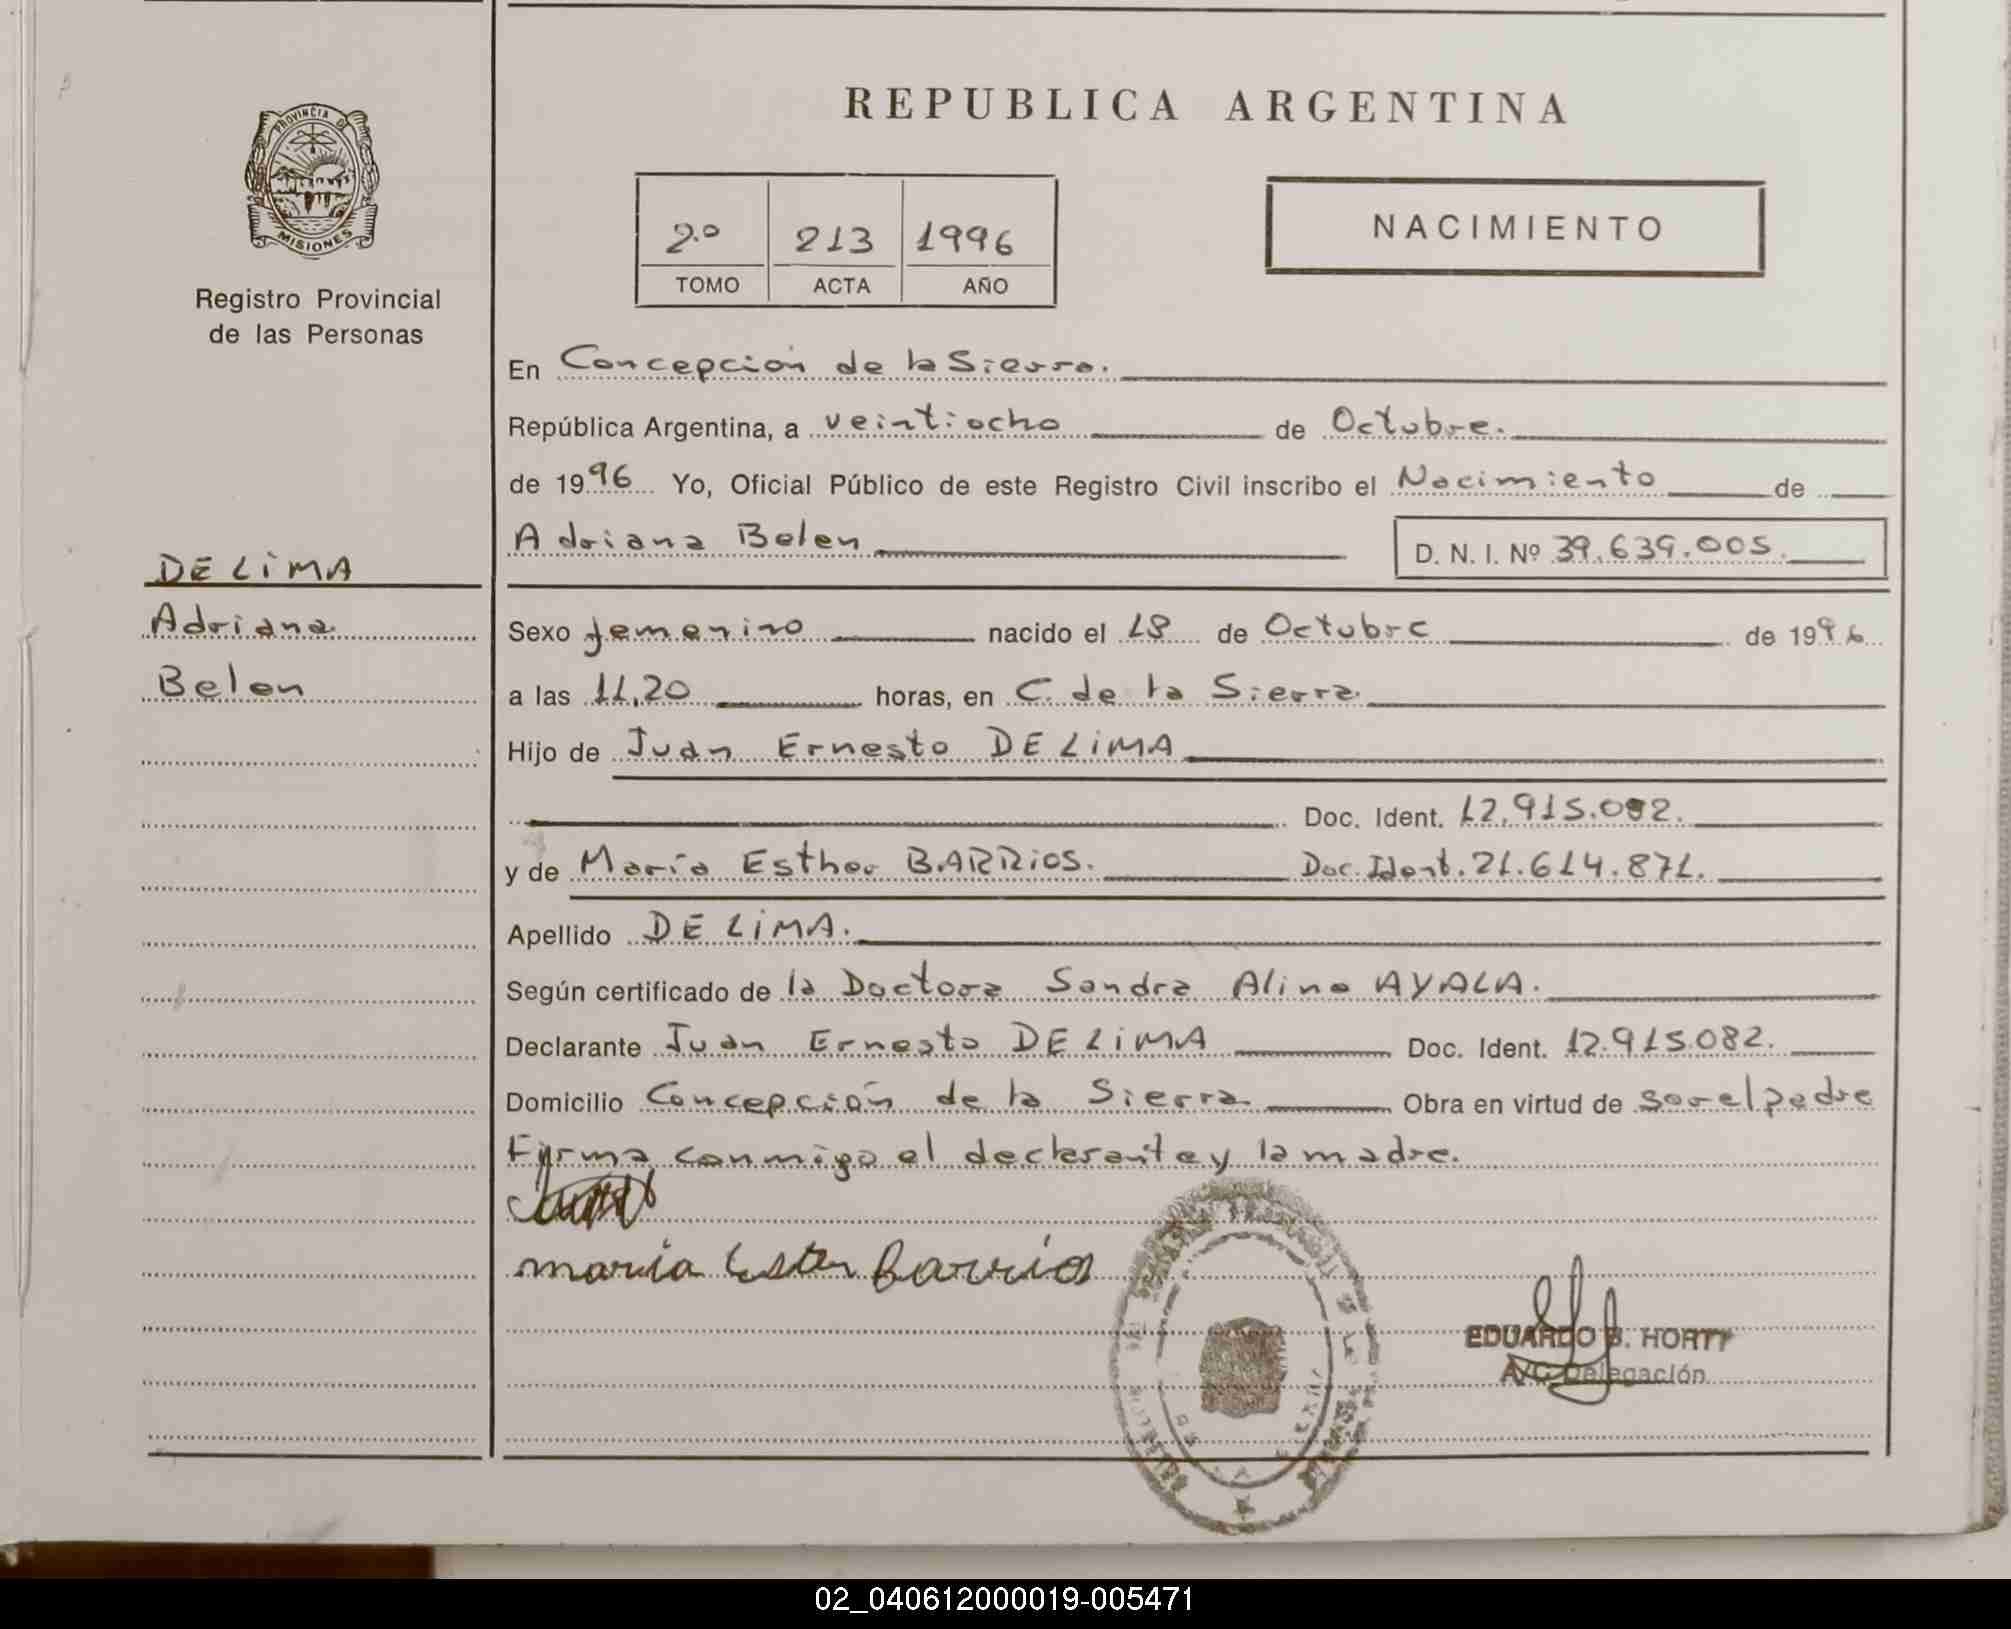 REPUBLICA ARGENTINA
PROVINCIA DE
MISIONES
Registro Provincial
de las Personas
2.º 213 1996
TOMO ACTA AÑO
NACIMIENTO
DE LIMA
Adriana
Belen
En Concepción de la Sierra.
República Argentina, a veintiocho de Octubre.
de 1996 Yo, Oficial Público de este Registro Civil inscribo el Nacimiento de
Adriana Belen D. N. I. Nº 39.639.005.
Sexo femenino nacido el 18 de Octubre de 1996
a las 11,20 horas, en C. de la Sierra.
Hijo de Juan Ernesto DE LIMA
Doc. Ident. 12.915.082.
y de María Esther BARRIOS. Doc. Ident. 21.614.871.
Apellido DE LIMA.
Según certificado de la Doctora Sandra Alina AYALA.
Declarante Juan Ernesto DE LIMA Doc. Ident. 12.915.082.
Domicilio Concepción de la Sierra Obra en virtud de ser el padre
Firma conmigo el declarante y la madre.
maria Ester Barrios
EDUARDO B. HORTT
A/C Delegación
02_040612000019-005471